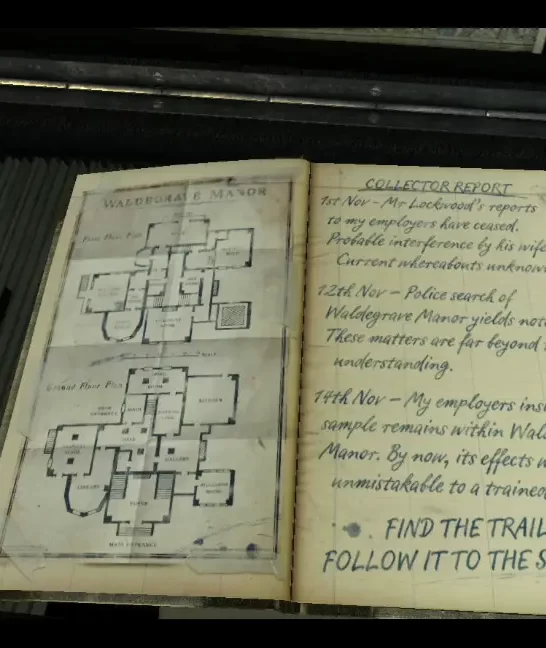 WALDEGRAVE MANOR
First Floor Plan
Ground Floor Plan
KITCHEN
HALL
GALLERY
LIBRARY
FOYER
MAIN ENTRANCE
COLLECTOR REPORT
1st Nov - Mr Lockwood's reports
to my employers have ceased.
Probable interference by his wife
Current whereabouts unknow
12th Nov - Police search of
Waldegrave Manor yields not
These matters are far beyond
understanding.
14th Nov - My employers ins
sample remains within Wal
Manor. By now, its effects w
unmistakable to a traine
FIND THE TRAIL
FOLLOW IT TO THE S